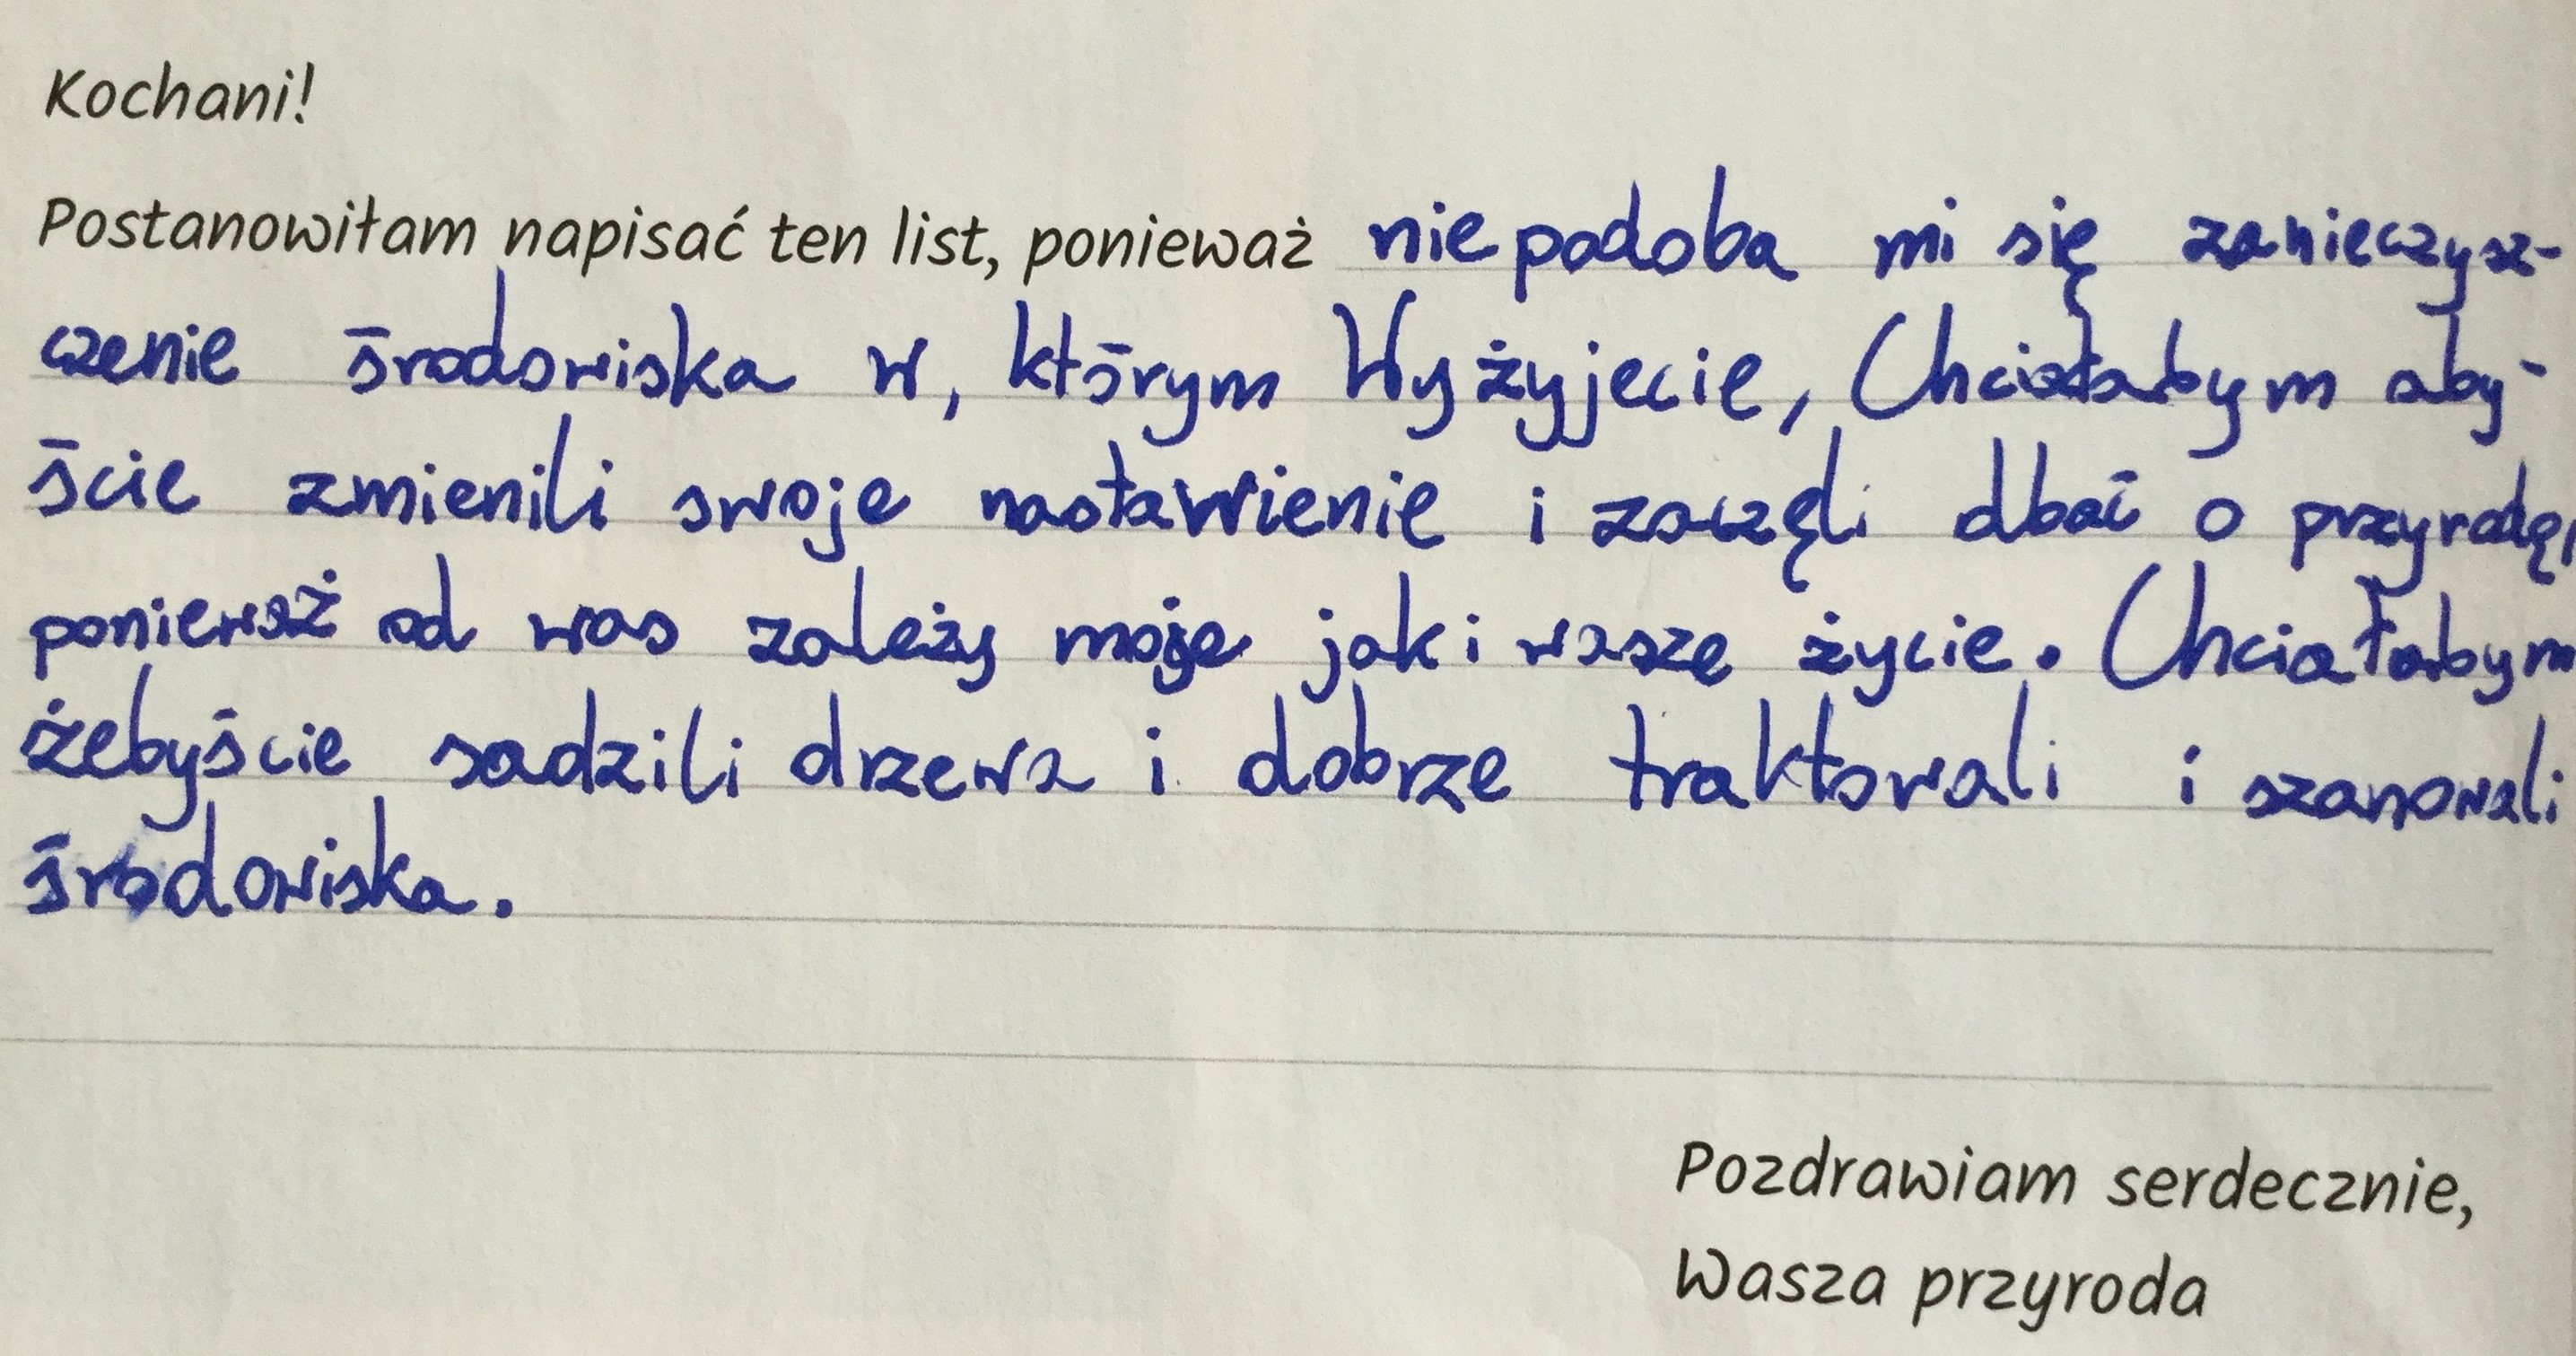 Kochani!
Postanowiłam napisać ten list, ponieważ nie podoba mi się zanieczysz-
czenie środowiska w, którym Wy żyjecie, Chciałabym aby-
ście zmienili swoje nastawienie i zaczęli dbać o przyrodę,
ponieważ od was zależy moje jak i wasze życie. Chciałabym
żebyście sadzili drzewa i dobrze traktowali i szanowali
środowiska.
Pozdrawiam serdecznie,
Wasza przyroda